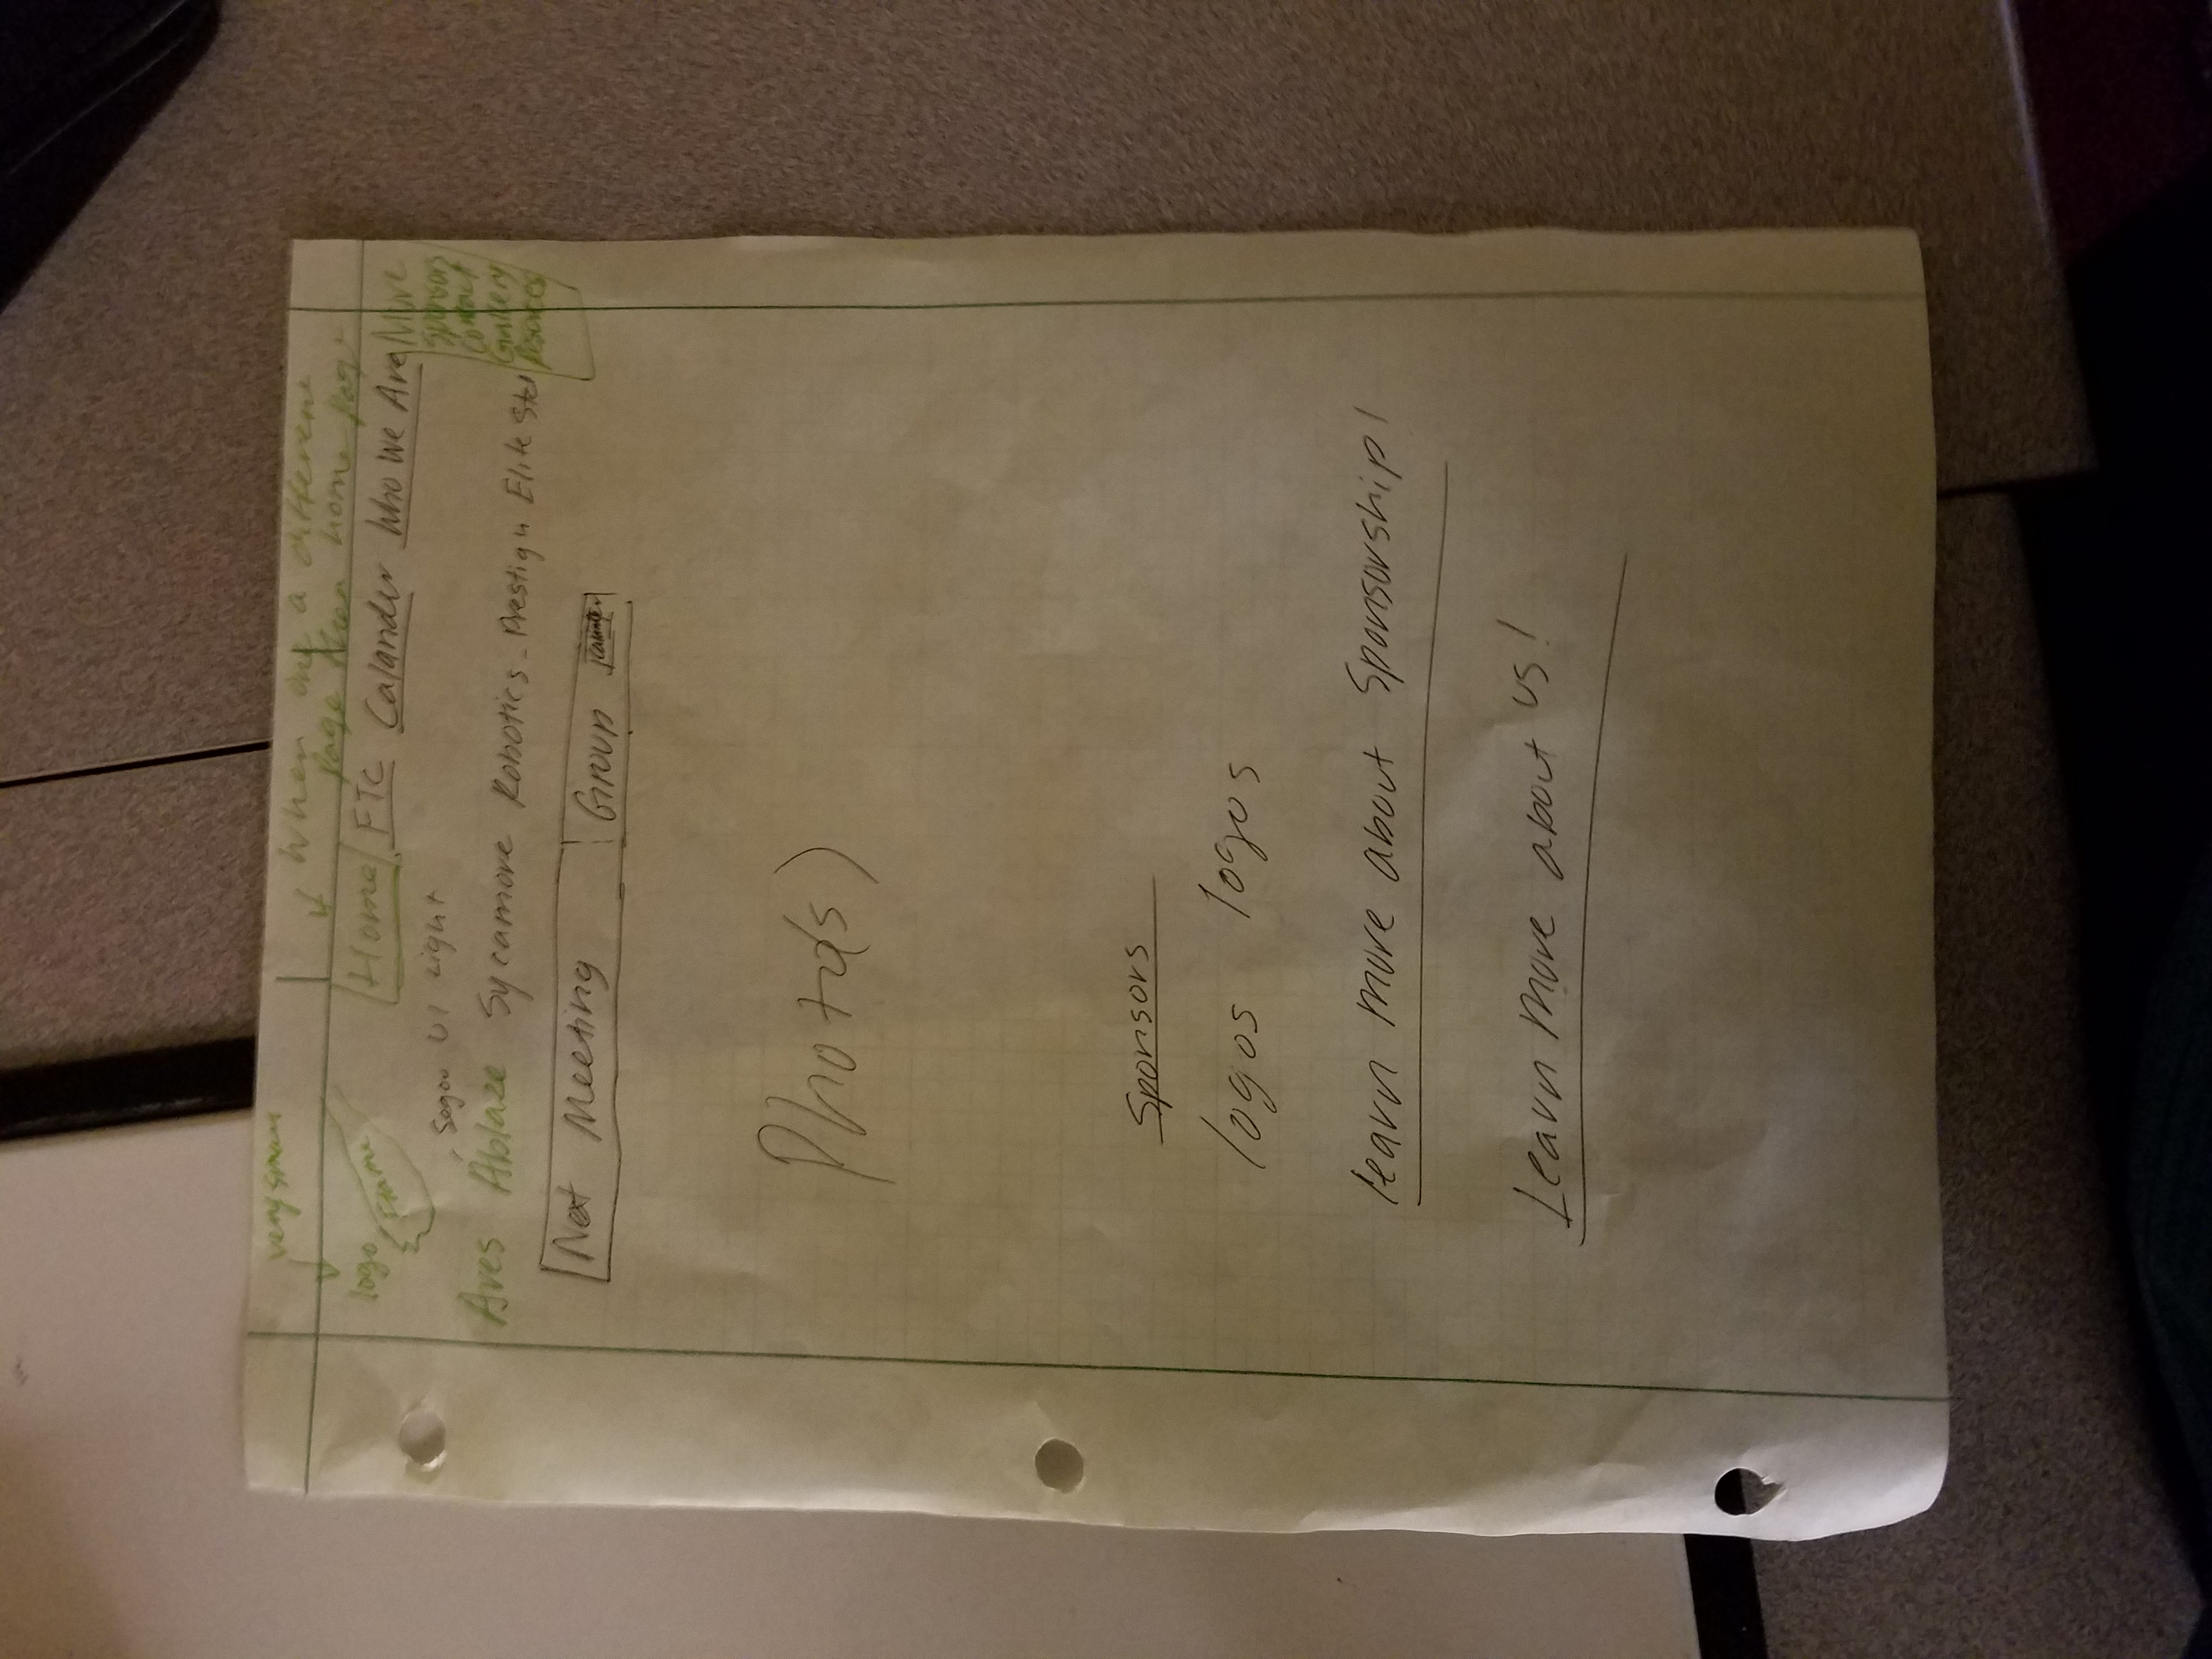 very small
When one a different
page than home page
logo
Home FTC Calander Who We Are More
Sponsors
Contact
Gallery
Segoe UI Light
Ares Ablaze Sycamore Robotics - Elite
Meeting Group
Photo(s)
Sponsors
logos logos
learn more about Sponsorship!
Learn more about us!